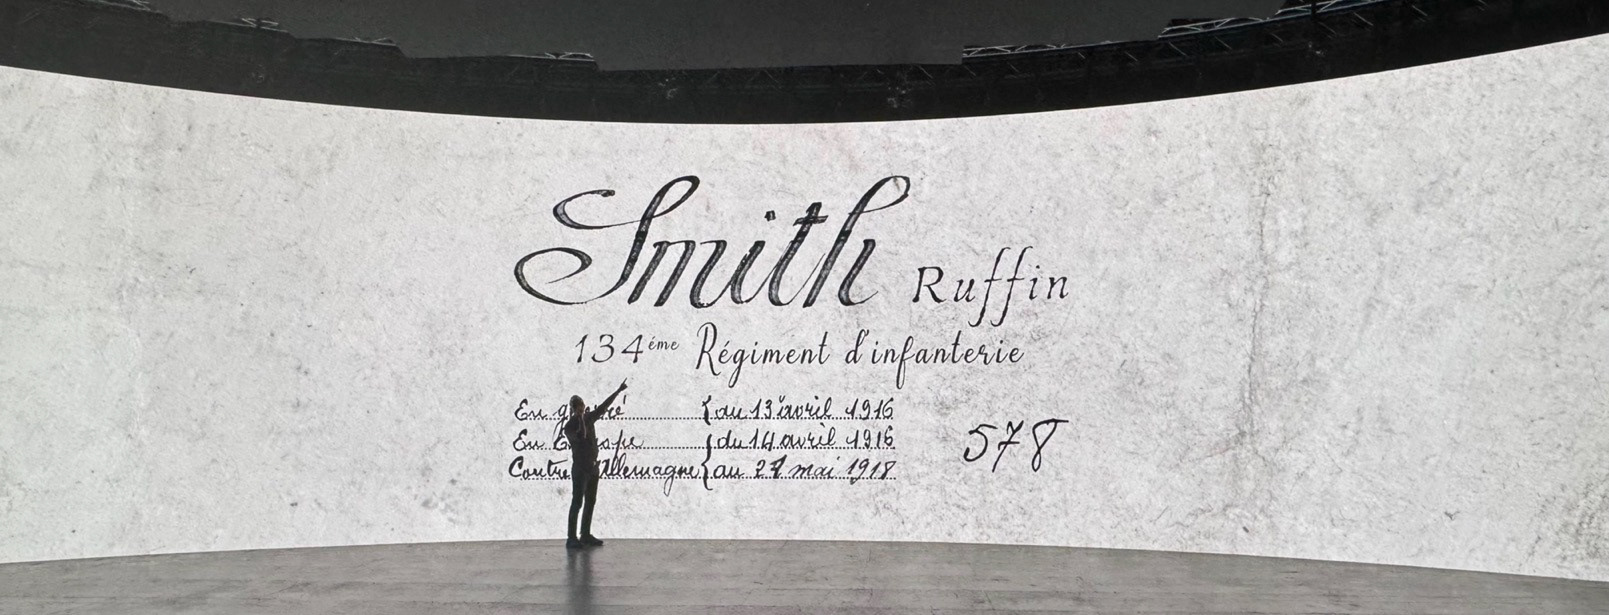 Smith Ruffin
134ème Régiment d'infanterie
En { au 13 avril 1916
En { du 14 avril 1916
Contre Allemagne { au 27 mai 1918
578